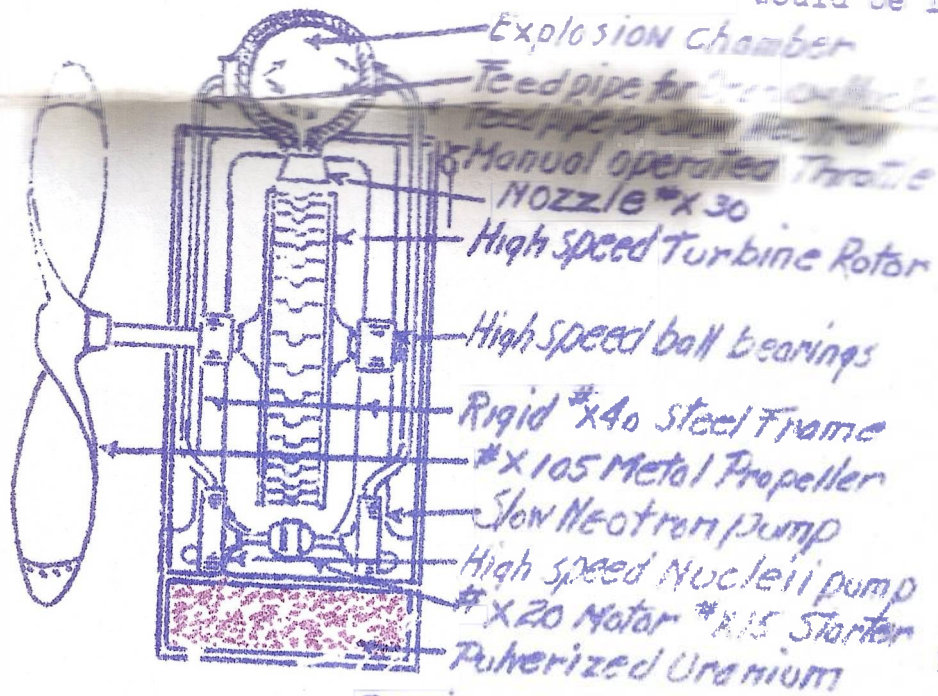 would be
Explosion Chamber
Feed pipe for Uranium Nuclei
Feed pipe for Slow Neutron
Manual operated Throttle
Nozzle #X30
High speed Turbine Rotor
High speed ball bearings
Rigid #X40 Steel Frame
#X105 Metal Propeller
Slow Neotron pump
High speed Nucleii pump
#X20 Motor #X15 Starter
Pulverized Uranium